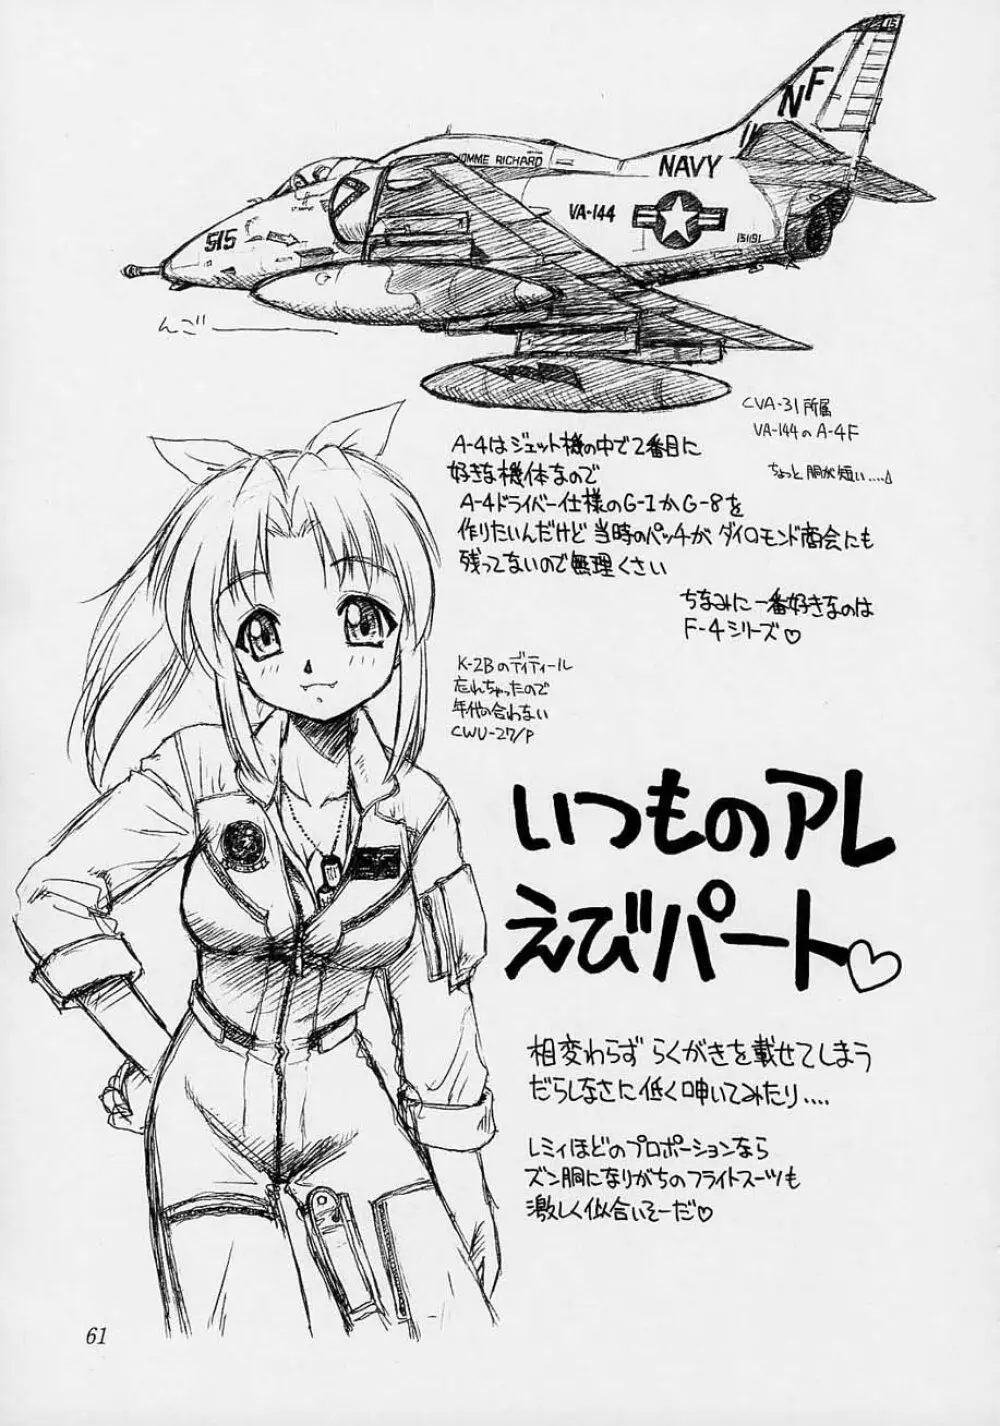 15
NF
NAVY
HOMME RICHARD
VA-144
515
151191
んごー
CVA-31所属
VA-144のA-4F
ちょっと胴が短い....
A-4はジェット機の中で2番目に
好きな機体なので
A-4ドライバー仕様のG-1かG-8を
作りたいんだけど当時のパッチがダイロモンド商会にも
残ってないので無理くさい
ちなみに一番好きなのは
F-4シリーズ♡
K-2Bのディティール
忘れちゃったので
年代の合わない
CWU-27/P
いつものアレ
えびパート♡
相変わらずらくがきを載せてしまう
だらしなさに低く呻いてみたり....
レミィほどのプロポーションなら
ズン胴になりがちのフライトスーツも
激しく似合いそーだ♡
61